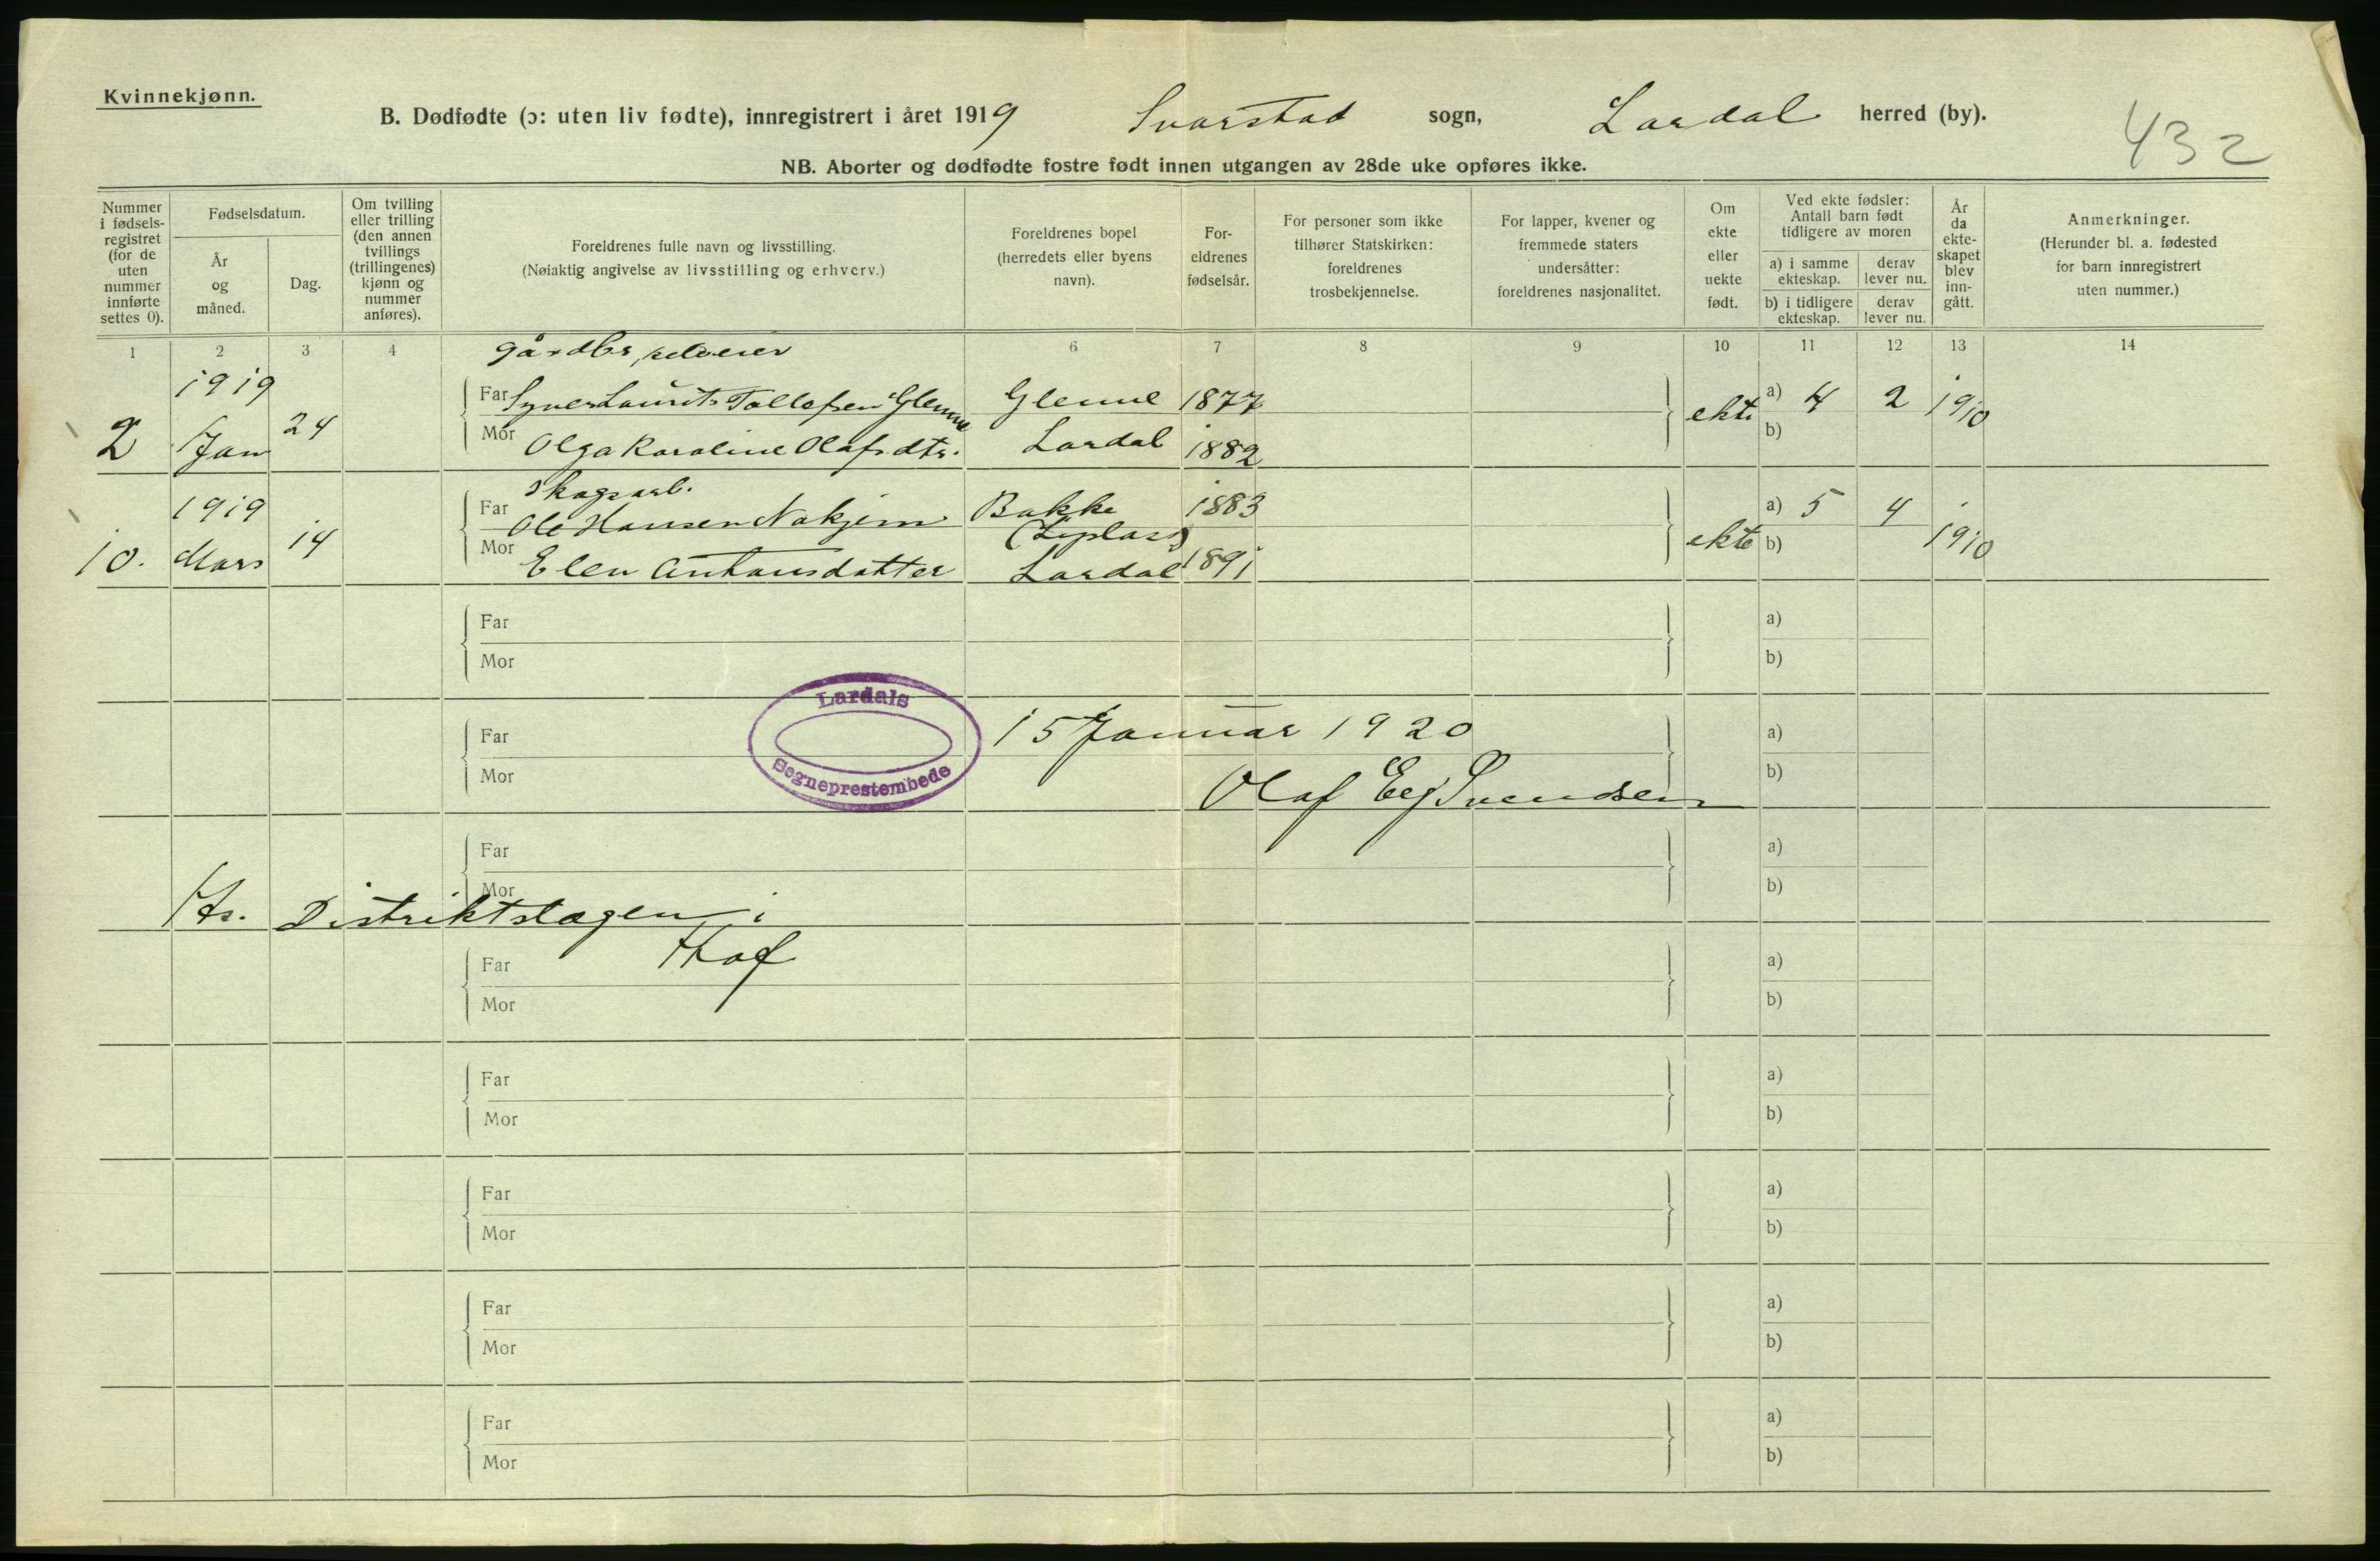 Kvinnekjønn.
B. Dødfødte (ɔ: uten liv fødte), innregistrert i året 1919 Svarstad sogn, Lardal herred (by).
432
NB. Aborter og dødfødte fostre født innen utgangen av 28de uke opføres ikke.
Nummer i fødsels-registret (for de uten nummer innførte settes 0).
Fødselsdatum.
År og måned.
Dag.
Om tvilling eller trilling (den annen tvillings (trillingenes) kjønn og nummer anføres).
Foreldrenes fulle navn og livsstilling.
(Nøiaktig angivelse av livsstilling og erhverv.)
Foreldrenes bopel (herredets eller byens navn).
For-eldrenes fødselsår.
For personer som ikke tilhører Statskirken: foreldrenes trosbekjennelse.
For lapper, kvener og fremmede staters undersåtter: foreldrenes nasjonalitet.
Om ekte eller uekte født.
Ved ekte fødsler: Antall barn født tidligere av moren
a) i samme ekteskap.
derav lever nu.
b) i tidligere ekteskap.
derav lever nu.
År da ekte-skapet blev inn-gått.
Anmerkninger.
(Herunder bl. a. fødested for barn innregistrert uten nummer.)
1 2 3 4 6 7 8 9 10 11 12 13 14
gårdbr, selveier
1919
Far Laurits Tollefsen Glenne Glenne 1877 a) 4 2 1910
2 Jan 24 ekte
Mor Olga Karoline Olafsdtr. Lardal 1882 b)
Skogsarb.
1919
Far Ole Hansen Nakjem Bakke 1883 a) 5 4
10. Mars 14 ekte b) 1910
Mor Elen Antonsdatter Lardal 1891
Far a)
Mor b)
Lardals
Sogneprestembede
Far 15 Januar 1920 a)
Mor b)
Olaf Eeg Svendsen
Far a)
Mor b)
Hr. Distriktslægen i
Hof
Far a)
Mor b)
Far a)
Mor b)
Far a)
Mor b)
Far a)
Mor b)
Far a)
Mor b)